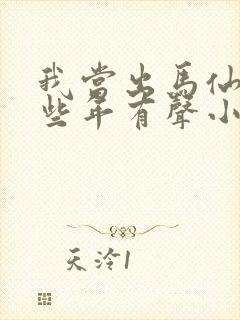 我當出馬仙
些年有聲小
天泠1